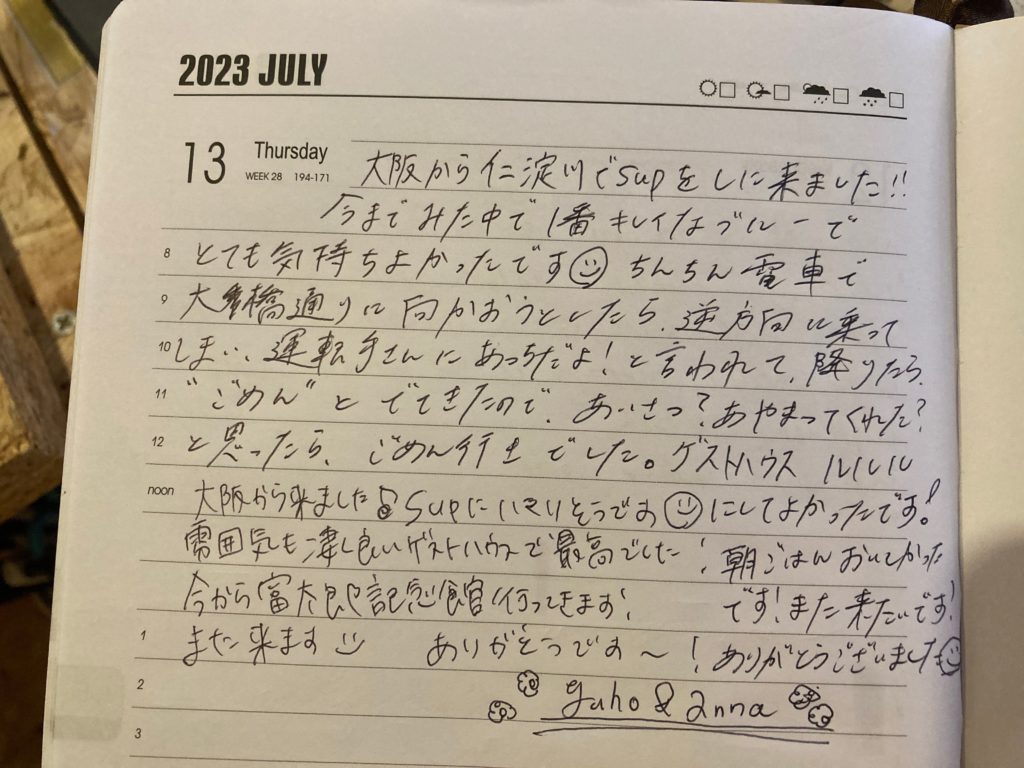 2023 JULY
13 Thursday
WEEK 28 194-171
大阪から仁淀川でSupをしに来ました!!
今までみた中で1番キレイなブルーで
8 とても気持ちよかったです ちんちん電車で
9 大橋通りに向かおうとしたら、逆方向に乗って
10 しまい、運転手さんにあっちだよ!と言われて、降りたら、
11 "ごめん"とでてきたので、あいさつ?あやまってくれた?
12 と思ったら、ごめん行きでした。ゲストハウス ルルル
noon 大阪から来ました Supに にしてよかったです!
雰囲気も凄し良いゲストハウスで最高でした! 朝ごはんおいしかった
今から富太郎記念館行ってきます! です!また来たいです!
1 また来ます ありがとうです〜! ありがとうございました
2 yuho & anna
3